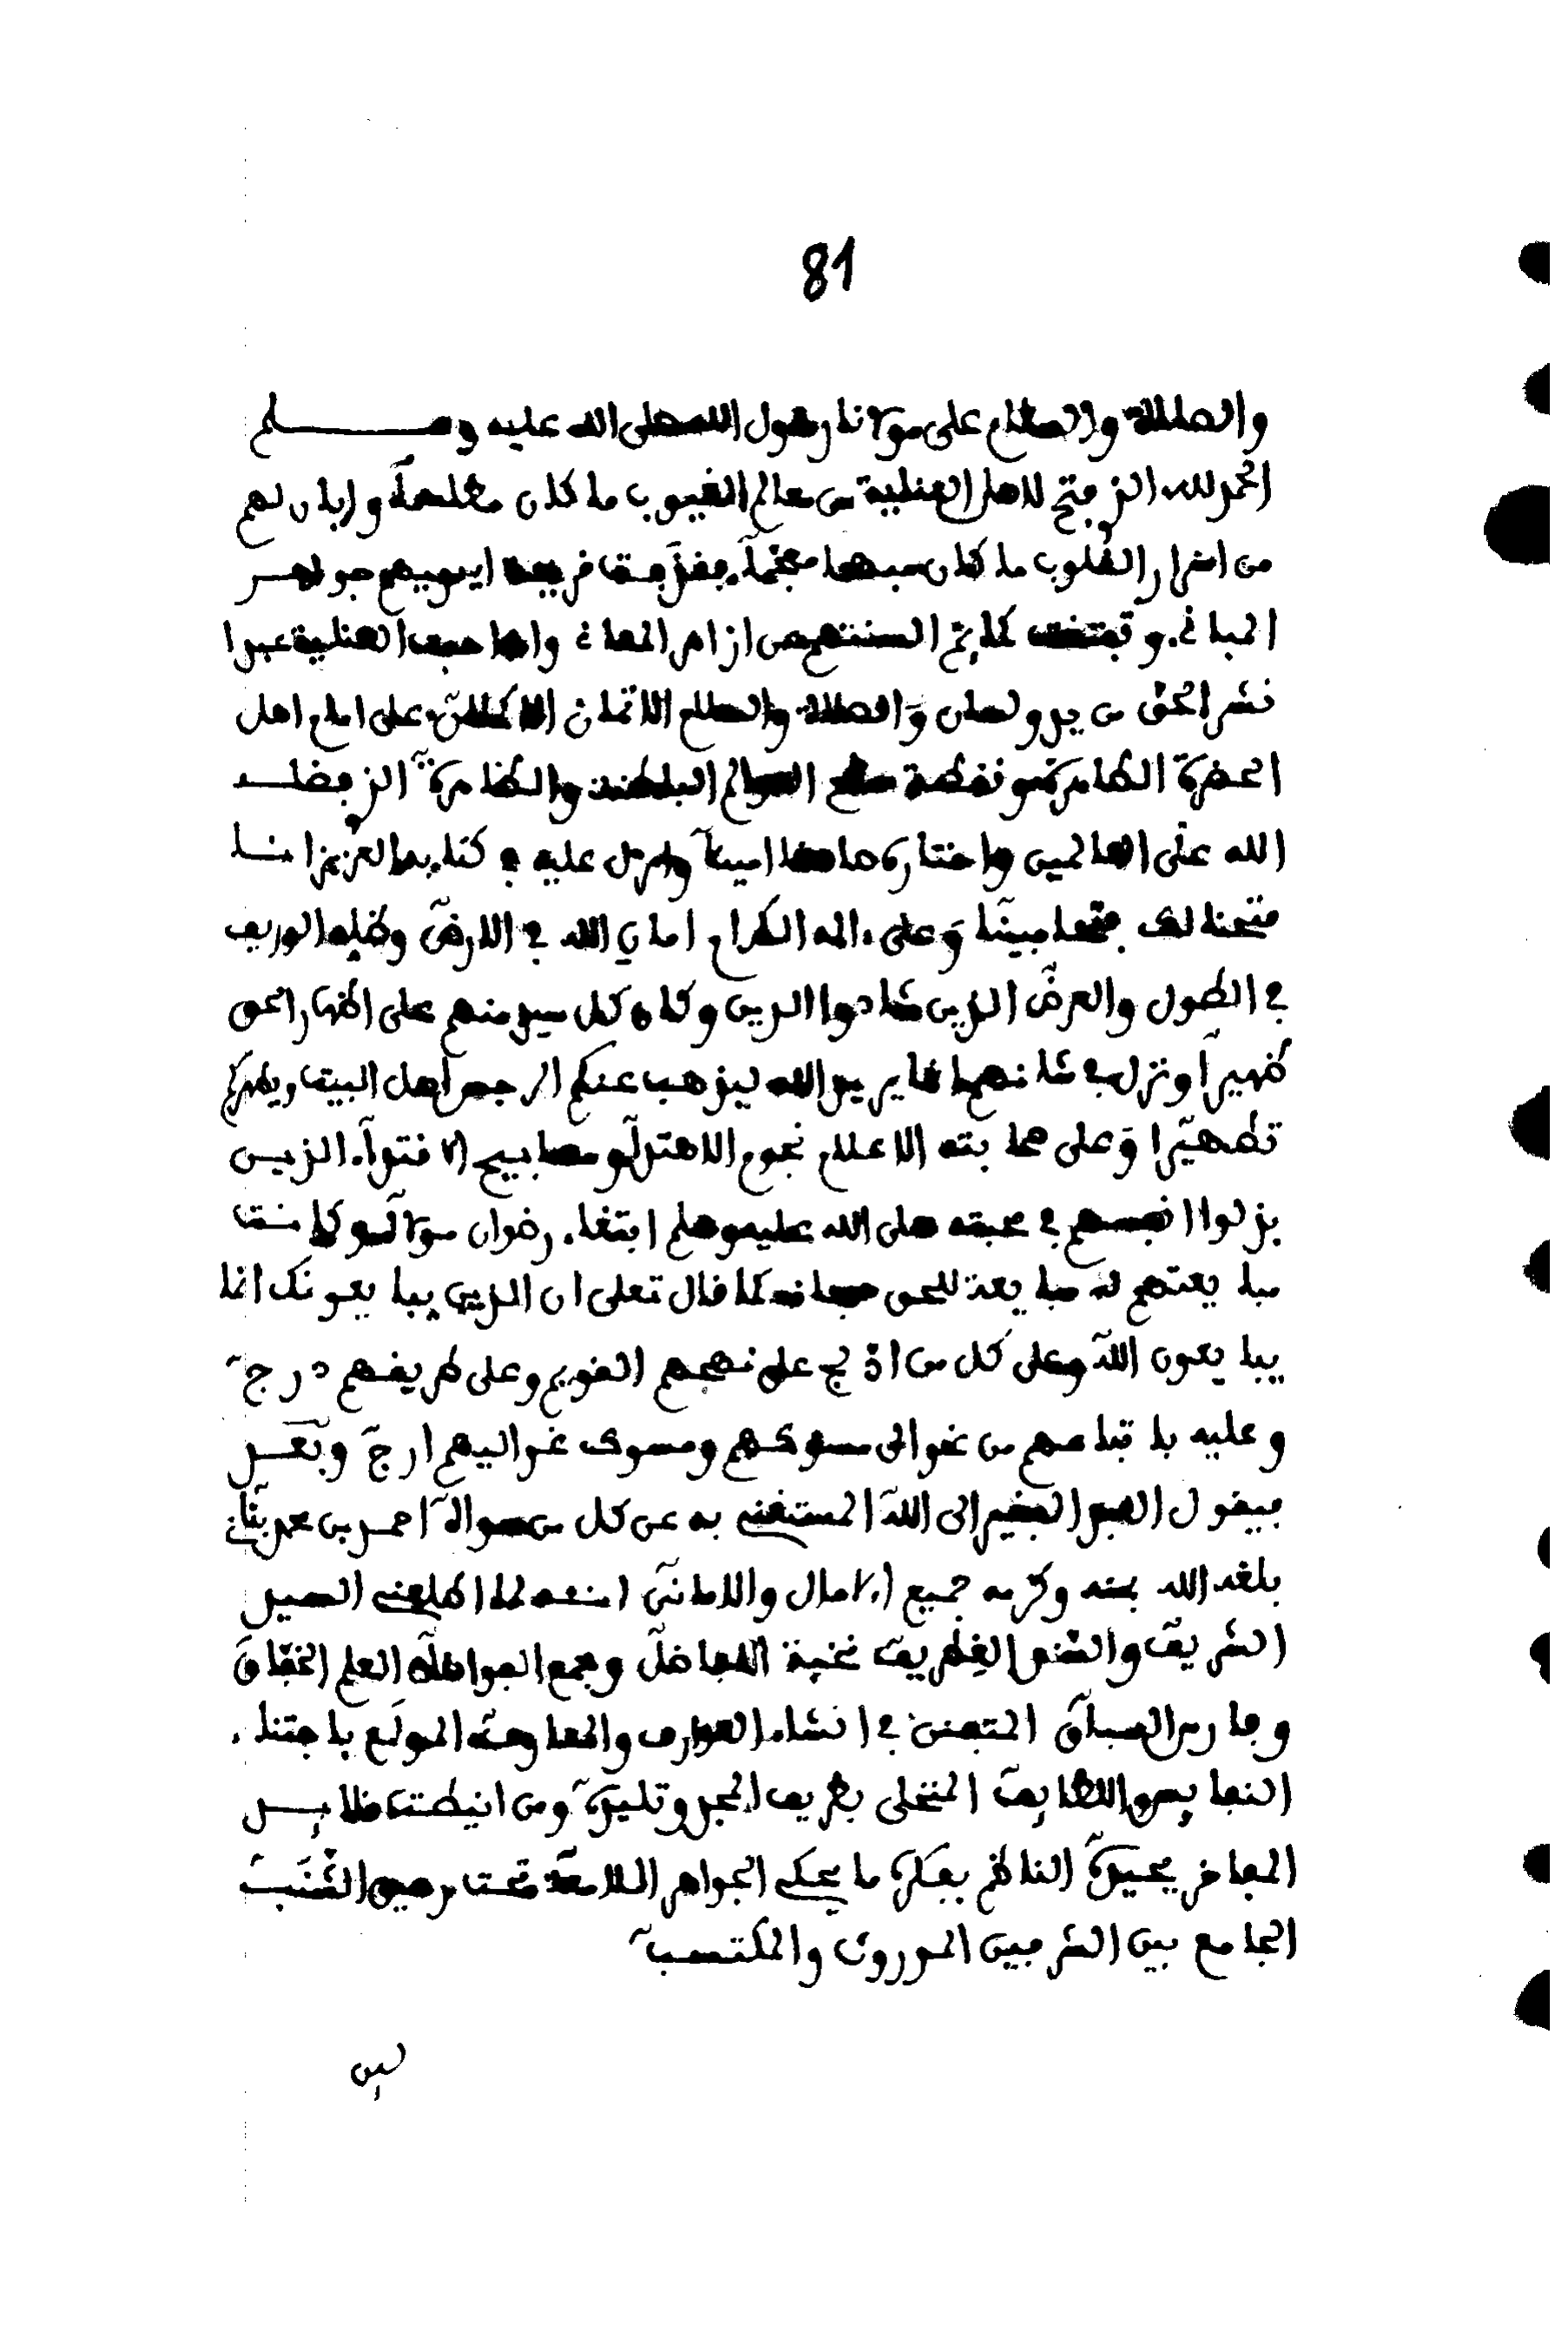 81
والصلاة والسلام على مولانا رسول الله صلى الله عليه وسلم
الحمد لله الذي فتح لاهل العناية من عالم الغيوب ما كان مطلسما وابان لهم
من اسرار القلوب ما كان مبهما معجما فقذفت قرايحهم جواهر
المباني وتفتقت كمايم السنتهم من ازاهر المعاني واها حيف العناية عبرا
نشر الحق من يد ولسان والصلاة والسلام الاتمان الاكملان على امام اهل
الحضرة الطاهرة ونقطة العوالم الباطنة والظاهرة الذي فضله
الله على العالمين واختاره امينا وانزل عليه في كتابه العزيز انا
فتحنا لك فتحا مبينا وعلى ءاله الكرام امان الله في الارض وظله الوريف
في الطول والعرض الذين شادوا الدين وكان كل سيد منهم على اظهار الحق
ظهيرا ونزل في شانهم انما يريد الله ليذهب عنكم الرجس اهل البيت ويطهركم
تطهيرا وعلى صحابته الاعلام نجوم الاهتدا ومصابيح الاقتدا الذين
بذلوا انفسهم في محبته صلى الله عليه وسلم ابتغاء رضوان مولاه وكانت
مبايعتهم له مبايعة للحق سبحانه كما قال تعلى ان الذين يبايعونك انما
يبايعون الله وعلى كل من ادلج على نهجهم القويم وعلى طريقهم درج
وعليه باتباعهم من غوالي مسكهم ومسوك غواليهم ارج وبعد
فيقول العبد الفقير الى الله المستغني به عن كل من سواه احمد بن محمد بناني
بلغه الله بمنه وكرمه جميع الامال والاماني انه لما اطلعني السيد
الشريف والشهم الغطريف نخبة الافاضل ومجمع الفواضل العلم الخفاق
وفارس السباق المتفنن في انشاء العوارف والمعارف المولع باجتناء
النفايس واللطايف المتحلى بطريف المجد وتليده ومن انيطت نفايس
المفاخر بجيده الناظم بفكره ما يحكي الجواهر اللامعة تحت الشنب
الجامع بين الشرفين الموروث والمكتسب